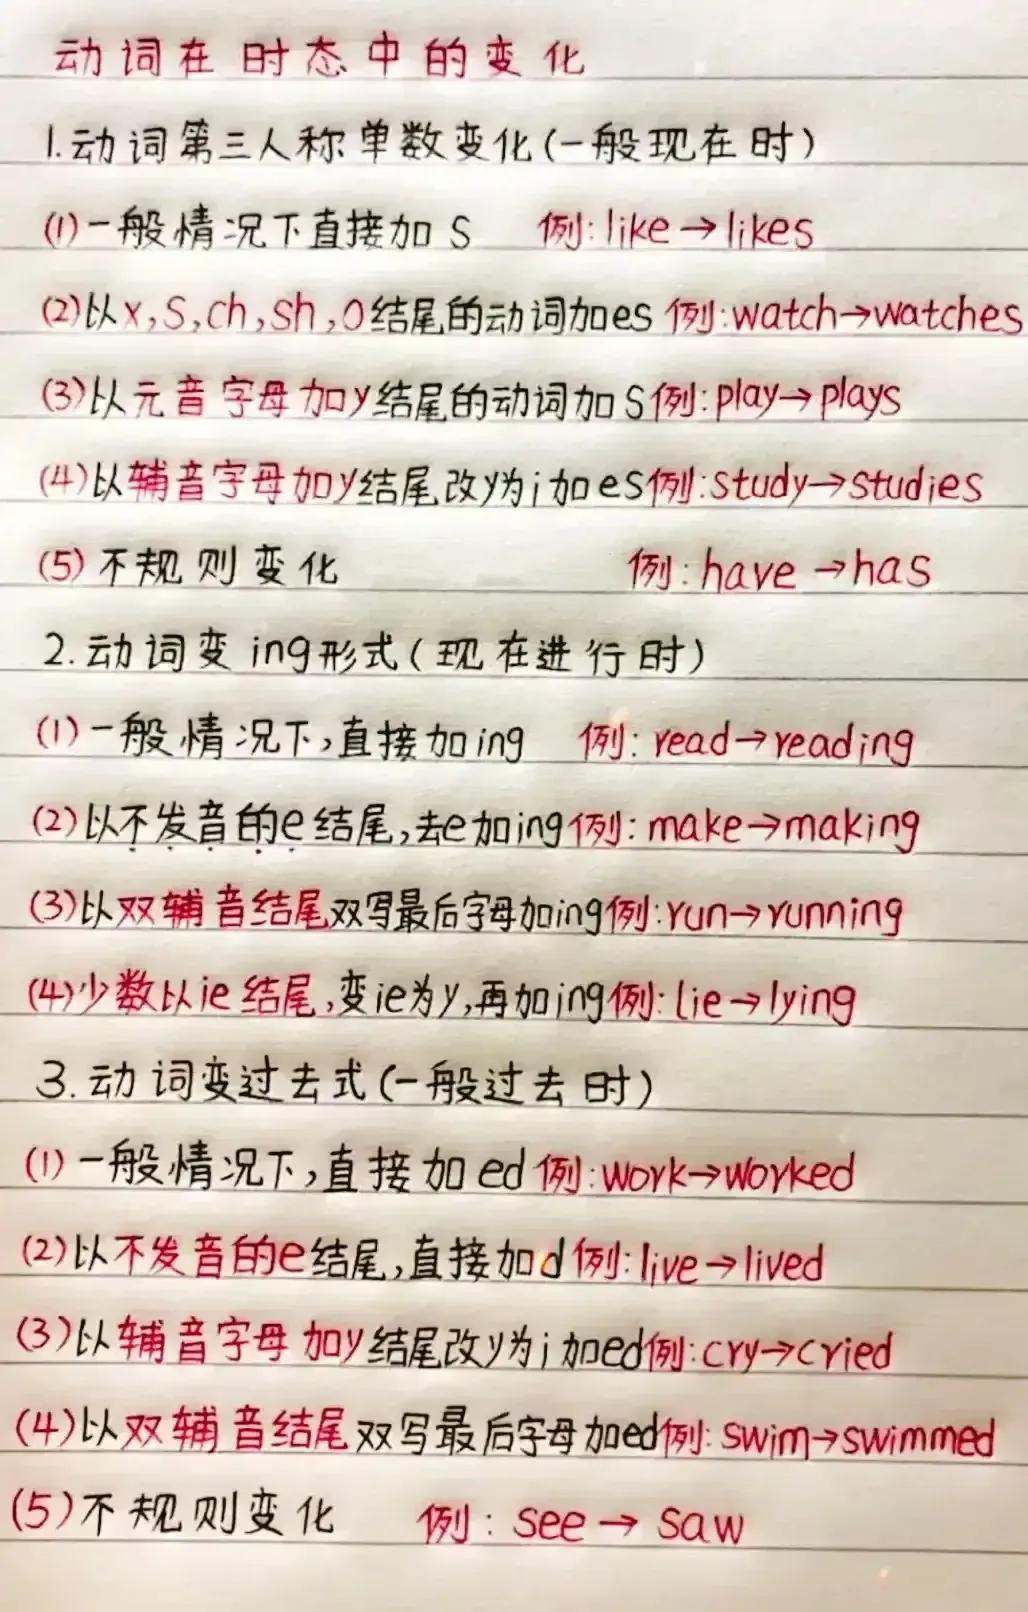 动词在时态中的变化
1.动词第三人称单数变化(一般现在时)
(1)一般情况下直接加s 例:like→likes
(2)以x,s,ch,sh,o结尾的动词加es 例:watch→watches
(3)以元音字母加y结尾的动词加s例:play→plays
(4)以辅音字母加y结尾改y为i加es例:study→studies
(5)不规则变化 例:have→has
2.动词变ing形式(现在进行时)
(1)一般情况下,直接加ing 例:read→reading
(2)以不发音的e结尾,去e加ing例:make→making
(3)以双辅音结尾双写最后字母加ing例:run→running
(4)少数以ie结尾,变ie为y,再加ing例:lie→lying
3.动词变过去式(一般过去时)
(1)一般情况下,直接加ed例:work→worked
(2)以不发音的e结尾,直接加d例:live→lived
(3)以辅音字母加y结尾改y为i加ed例:cry→cried
(4)以双辅音结尾双写最后字母加ed例:swim→swimmed
(5)不规则变化 例:see→saw